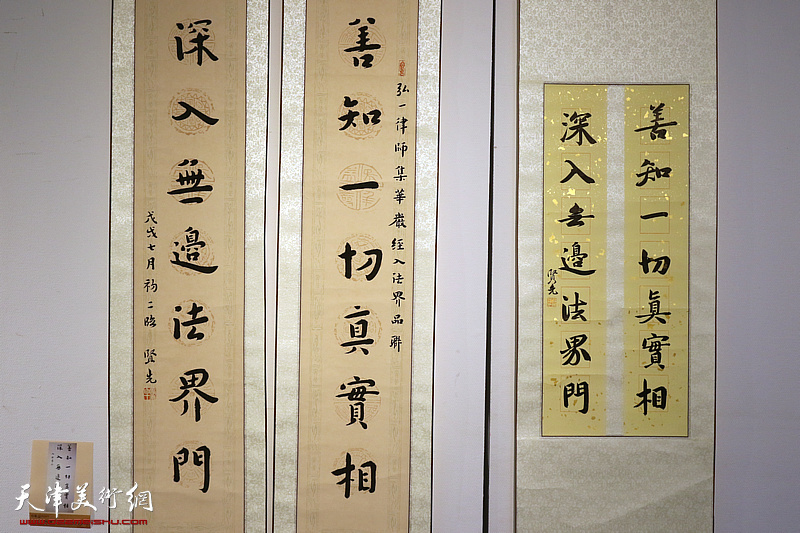 善知一切真實相
弘一律師集華嚴經入法界品聯
深入無邊法界門
戊戌七月初二臨 賢先
善知一切真實相
深入無邊法界門
賢先
善知一切真實相
深入無邊
天津美術網
www.tianjinwe-shu.com